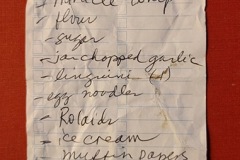 - Miracle Whip
- flour
- sugar
- jar chopped garlic
- linguini
- egg noodles
- Rolaids
- ice cream
- muffin papers